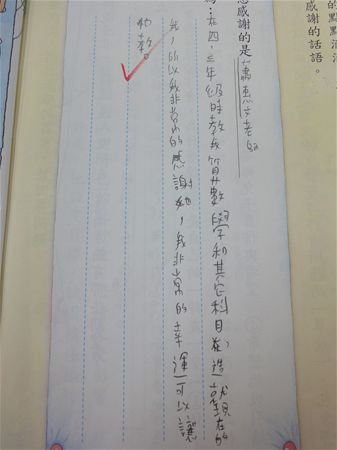 的點點滴滴
感謝的話語。
感謝的是蕭惠文老師
：在四、三年級時教我算數學和其它科目在，造就現在的
我，所以我非常的感謝她，我非常的幸運可以讓
她教。